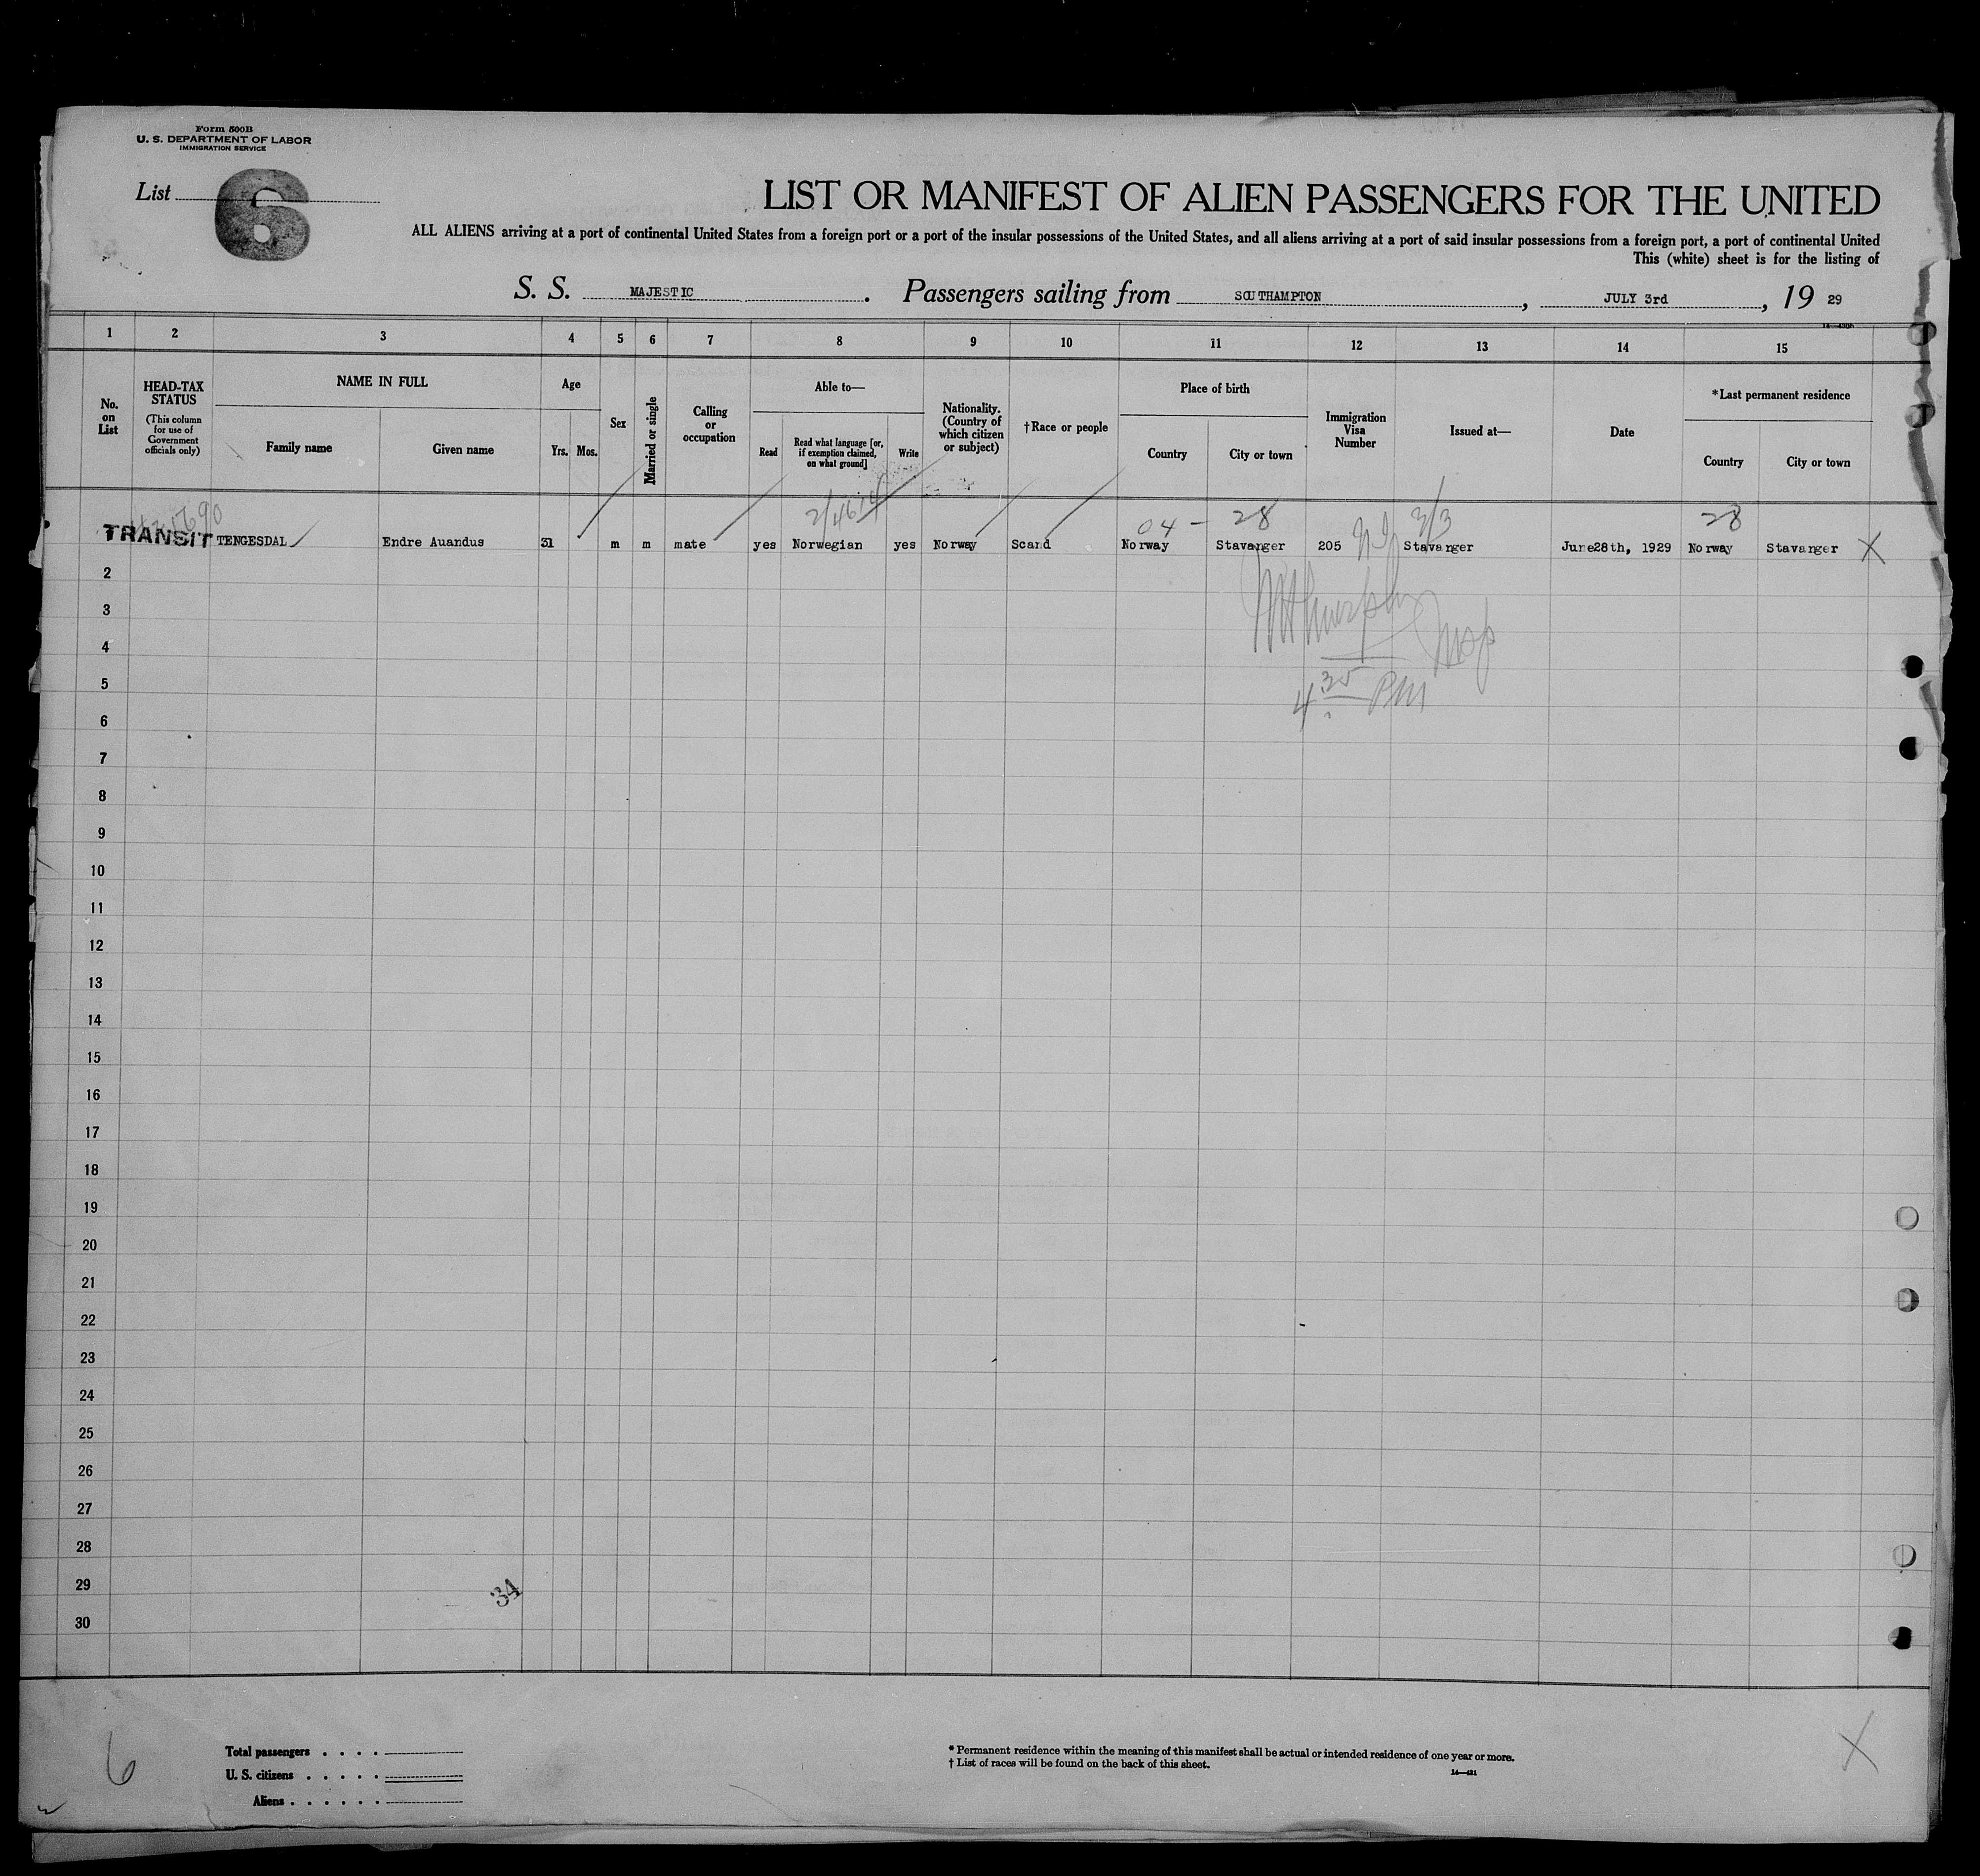 Form 500B
U. S. DEPARTMENT OF LABOR
IMMIGRATION SERVICE
List 6
LIST OR MANIFEST OF ALIEN PASSENGERS FOR THE UNITED
ALL ALIENS arriving at a port of continental United States from a foreign port or a port of the insular possessions of the United States, and all aliens arriving at a port of said insular possessions from a foreign port, a port of continental United
This (white) sheet is for the listing of
S. S. MAJESTIC. Passengers sailing from SOUTHAMPTON, JULY 3rd, 19 29
1 2 3 4 5 6 7 8 9 10 11 12 13 14 15
No. on List
HEAD-TAX STATUS
(This column for use of Government officials only)
NAME IN FULL
Family name
Given name
Age
Yrs. Mos.
Sex
Married or single
Calling or occupation
Able to—
Read
Read what language [or, if exemption claimed, on what ground]
Write
Nationality. (Country of which citizen or subject)
†Race or people
Place of birth
Country
City or town
Immigration Visa Number
Issued at—
Date
*Last permanent residence
Country
City or town
04 - 28 3/3 28
TRANSIT TENGESDAL Endre Auandus 31 m m mate yes Norwegian yes Norway Scand Norway Stavanger 205 Stavanger June28th, 1929 Norway Stavanger X
2
3
4
5
4 35 PM
6
7
8
9
10
11
12
13
14
15
16
17
18
19
20
21
22
23
24
25
26
27
28
29
34
30
6
Total passengers . . . .
U. S. citizens . . . . .
Aliens . . . . . .
* Permanent residence within the meaning of this manifest shall be actual or intended residence of one year or more.
† List of races will be found on the back of this sheet.
14—421
X